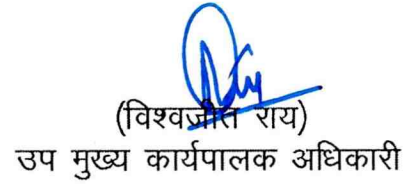 (विश्वजीत राय)
उप मुख्य कार्यपालक अधिकारी